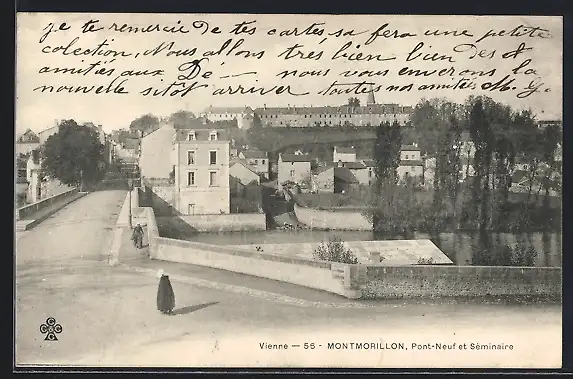 je te remercie de tes cartes sa fera une petite
colection, Nous allons très bien bien des
amitiés aux Dé — nous vous enverons la
nouvelle sitot arriver toutes nos amitiés
Vienne — 56 - MONTMORILLON, Pont-Neuf et Séminaire